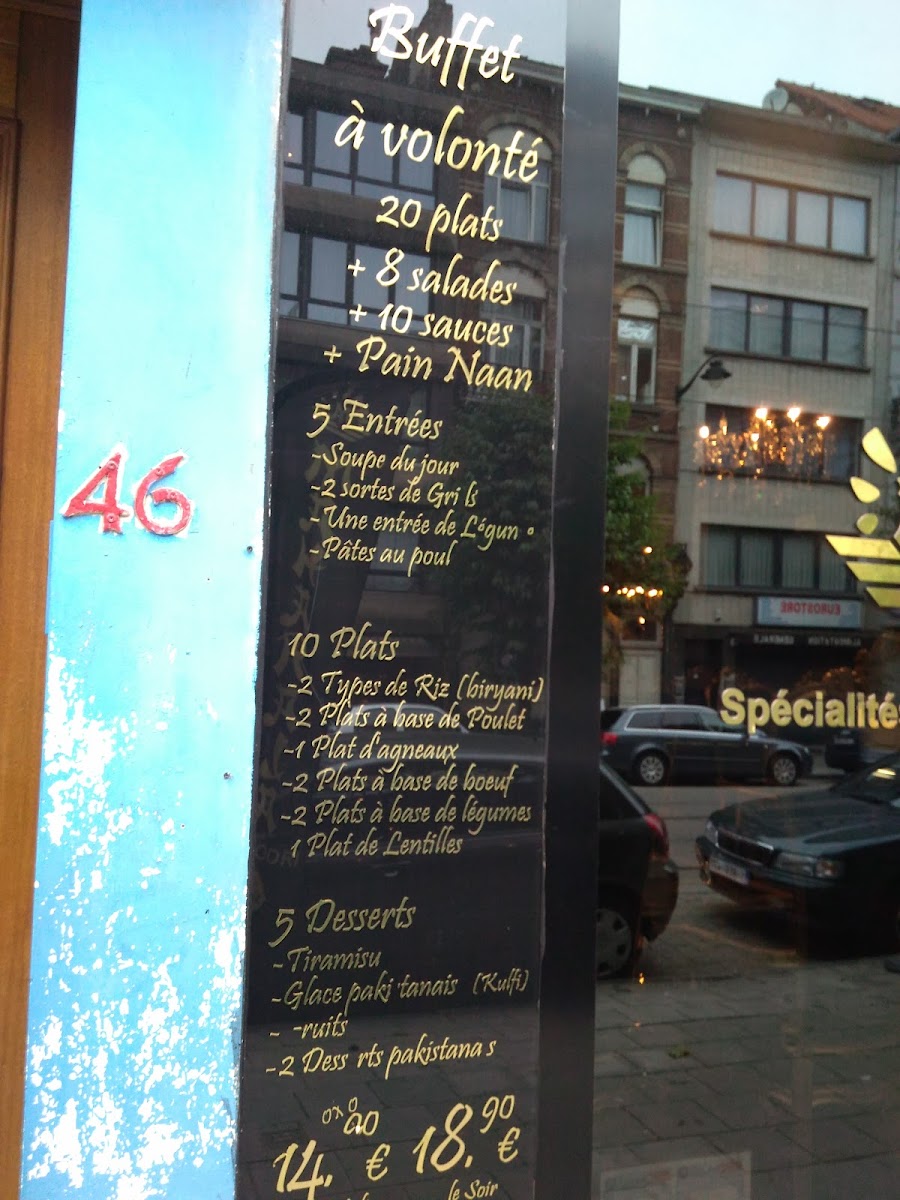 Buffet
à volonté
20 plats
+ 8 salades
+ 10 sauces
+ Pain Naan
5 Entrées
-Soupe du jour
-2 sortes de Gri
-Une entrée de Légun
-Pâtes au poul
10 Plats
-2 Types de Riz (biryani)
-2 Plats à base de Poulet
-1 Plat d'agneaux
-2 Plats à base de boeuf
-2 Plats à base de légumes
1 Plat de Lentilles
5 Desserts
-Tiramisu
-Glace paki tanais (Kulfi)
- ruits
-2 Dess rts pakistana s
14. € 18.90 €
le Soir
46
Spécialités
EUROSTORE
ALIMENTATION GENERALE